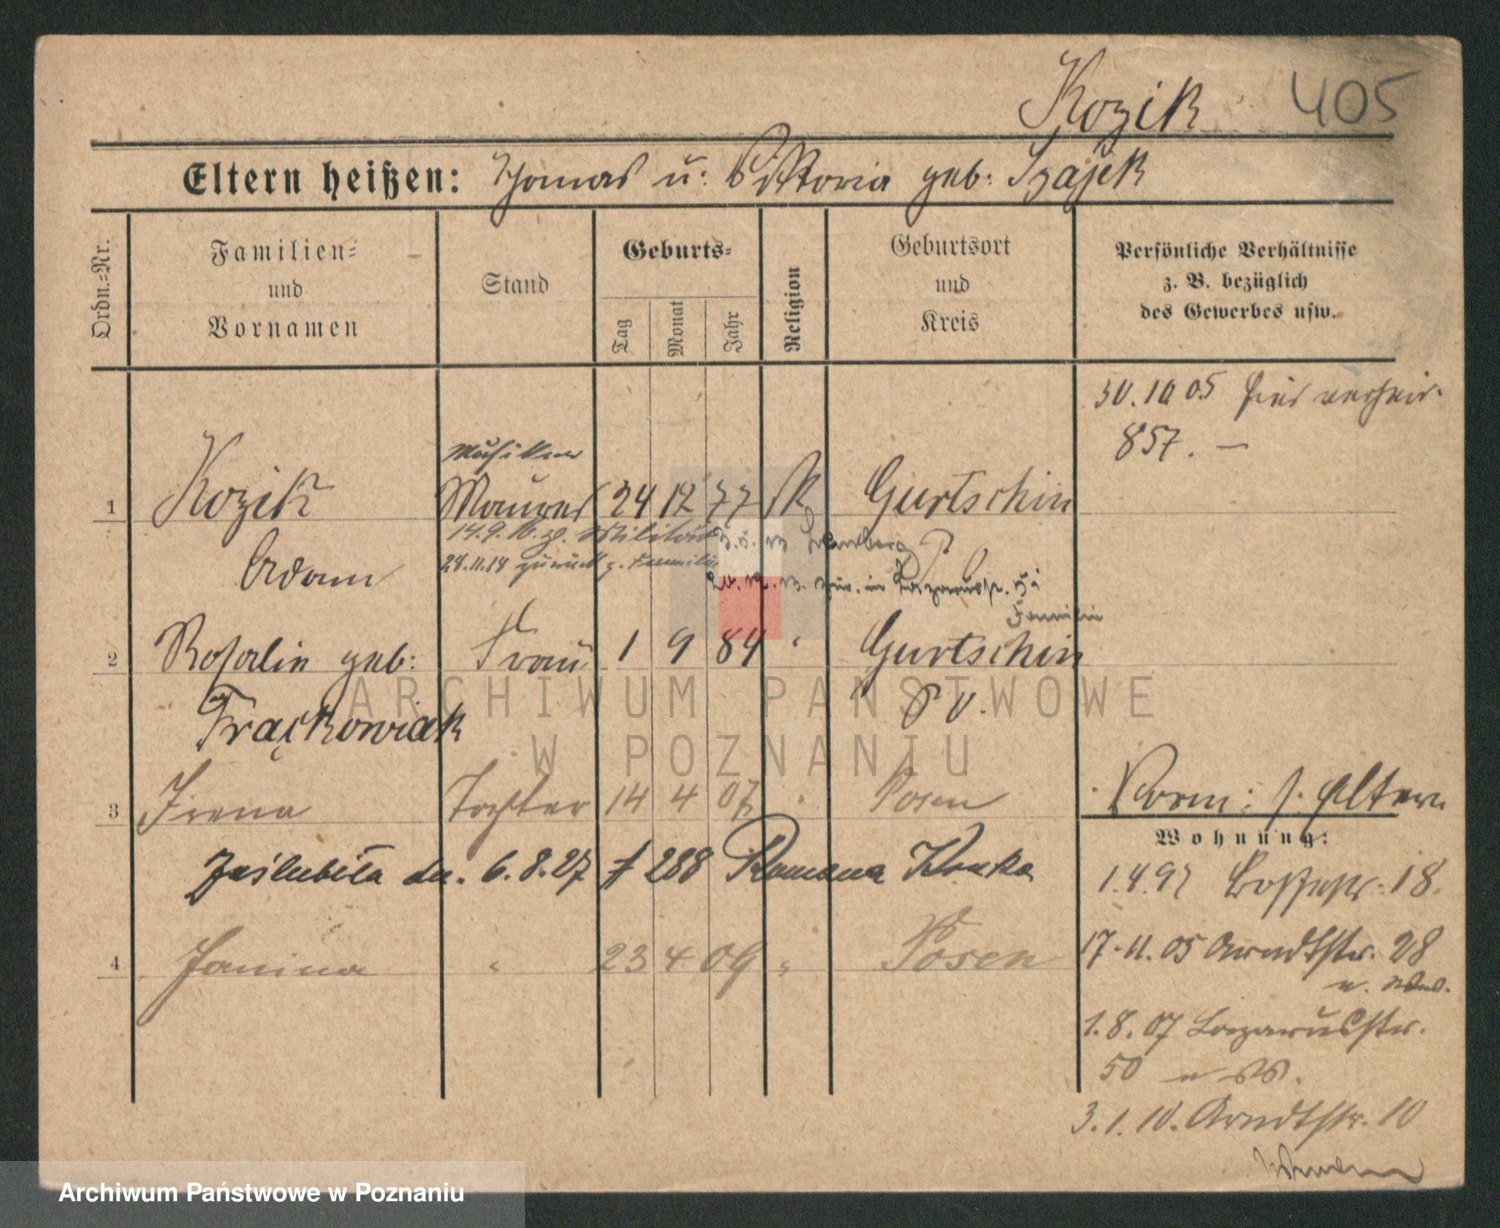 Kozik 405
Eltern heißen: Thomas u: Viktoria geb: Szajek
Ordn.-Nr.
Familien-
und
Vornamen
Stand
Geburts-
Tag
Monat
Jahr
Religion
Geburtsort
und
Kreis
Persönliche Verhältnisse
z. B. bezüglich
des Gewerbes usw.
30.10 05 hier verheir.
857. —
Musiker
1 Kozik Maurer 24 12 77 K Gurtschin
14.9.16. z. Militär
Adam
28.11.18 zurück z. Familie
Familie
2 Rosalie geb: Frau 1 9 84 " Gurtschin
Frąckowiak
P O.
3 Irena Tochter 14 4 07 " Posen
Norm: s. Eltern
Wohnung:
Zaślubiła dn. 6.8.27 # 288 Romana Kruka
1.4.97 18.
4 Janina " 23 4 09 " Posen
17.11.05 Arndtstr. 28
1.8.07 Lazarusstr.
50
3.1.10. Arndtstr. 10
ARCHIWUM PAŃSTWOWE
W POZNANIU
Archiwum Państwowe w Poznaniu